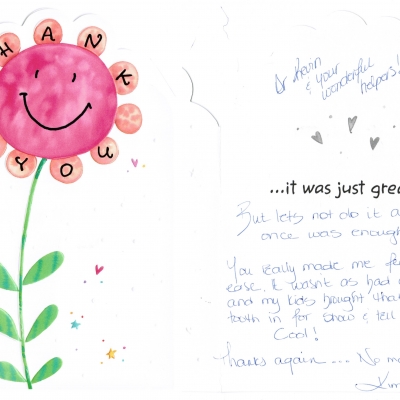 THANK
YOU
Dr Kevin
& your
wonderful
helpers!
...it was just grea
But lets not do it a
once was enough
You really made me fe
ease, it wasnt as bad
and my kids brought that
tooth in for show & tell
Cool!
Thanks again .... No mo
Kim